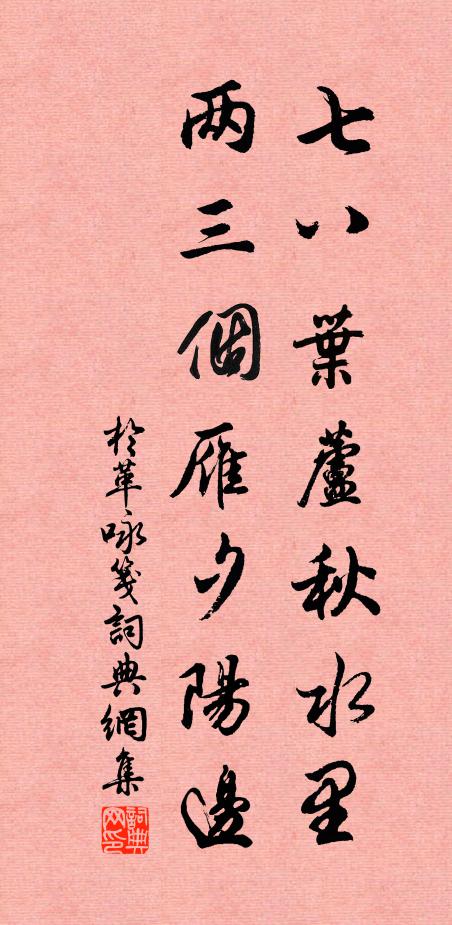 七八葉蘆秋水里
两三個雁夕陽邊
於華咏箋詞典網集
詞典网印